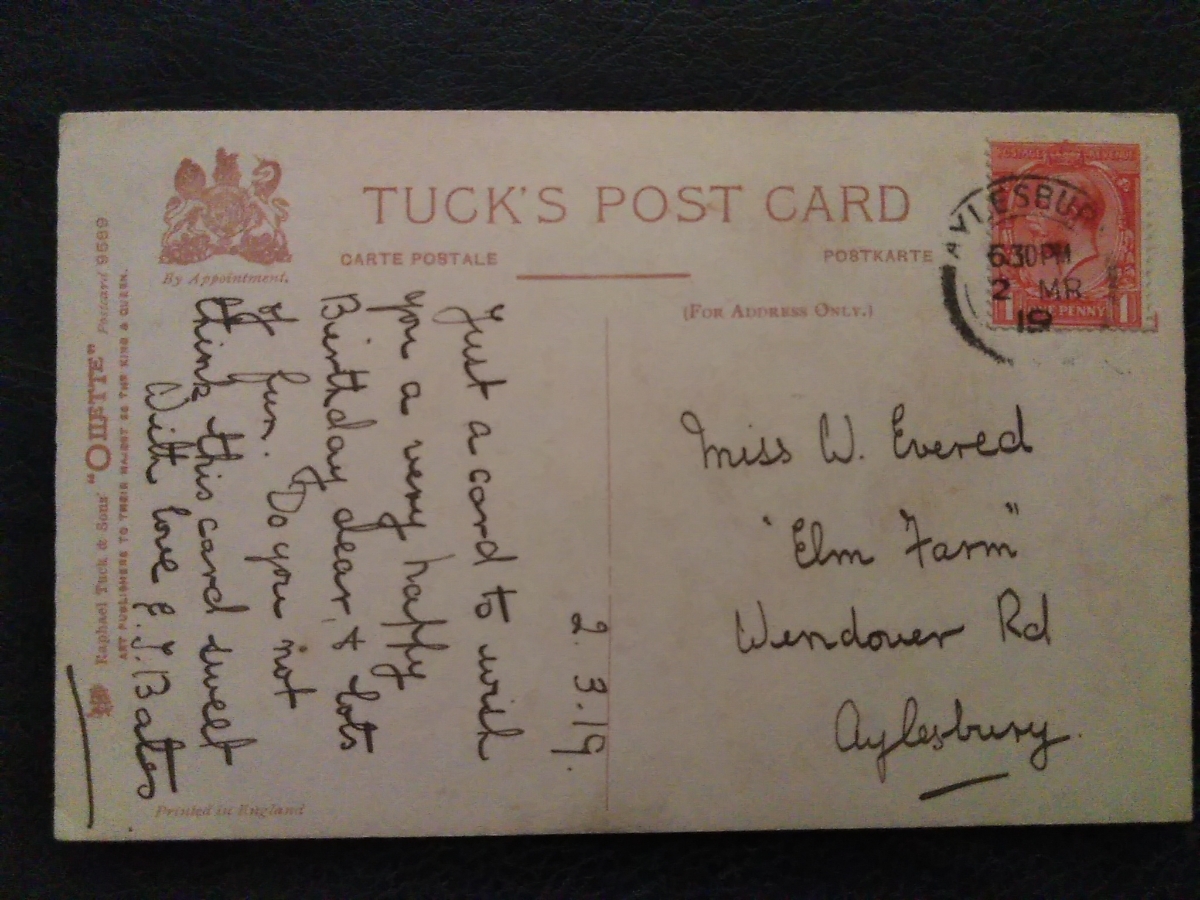 TUCK'S POST CARD
CARTE POSTALE
POSTKARTE
By Appointment.
(For Address Only.)
POSTAGE REVENUE
ONE PENNY
1 1
AYLESBU
6.30 PM
2 MR
19
2.3.19.
Just a card to wish
you a very happy
Birthday dear, & lots
of fun. Do you not
think this card sweet
With love E.J. Bates
Miss W. Evered
"Elm Farm"
Wendover Rd
Aylesbury.
Raphael Tuck & Sons' "OILETTE" Postcard 9589
ART PUBLISHERS TO THEIR MAJESTIES THE KING & QUEEN.
Printed in England